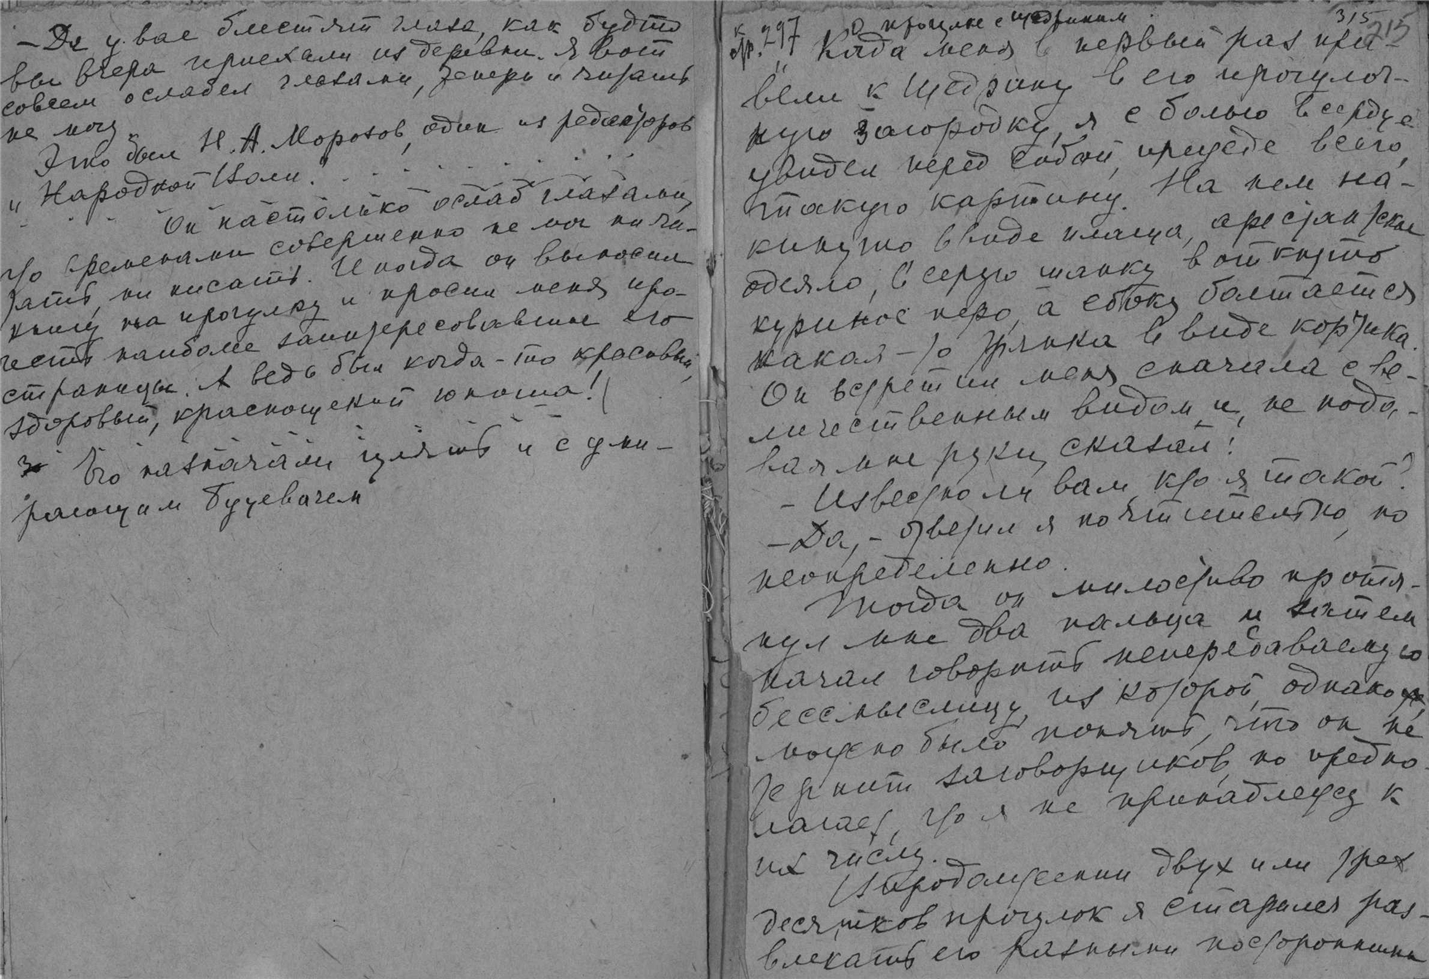 – Да у вас блестят глаза, как будто
вы вчера приехали из деревни. Я вот
совсем ослабел глазами, теперь и читать
не могу.
Это был Н. А. Морозов, один из редакторов
„Народной Воли".
Он настолько ослаб глазами,
что временами совершенно не мог ни чи-
тать, ни писать. Иногда он выносил
книгу на прогулку и просил меня про-
честь наиболее заинтересовавшие его
страницы. А ведь был когда-то красивый,
здоровый, краснощекий юноша!
Его назначали гулять и с уми-
рающим Буцевичем
к стр. 297
О прогулке с Щедриным
315
215
„Когда меня в первый раз при-
вели к Щедрину в его прогулоч-
ную загородку, я с болью в сердце
увидел перед собой, прежде всего,
такую картину. На нем на-
кинуто в виде плаща, арестантское
одеяло, в серую шапку воткнуто
куриное перо, а сбоку болтается
какая-то тряпка в виде кортика.
Он встретил меня сначала с ве-
личественным видом и, не пода-
вая мне руки, сказал:
– Известно ли вам, кто я такой?
– Да, – ответил я почтительно, но
неопределенно.
Тогда он милостиво протя-
нул мне два пальца и затем
начал говорить непередаваемую
бессмыслицу, из которой, однако же,
можно было понять, что он не
терпит заговорщиков, но предпо-
лагает, что я не принадлежу к
их числу.
В продолжении двух или трех
десятков прогулок я старался раз-
влекать его разными посторонними